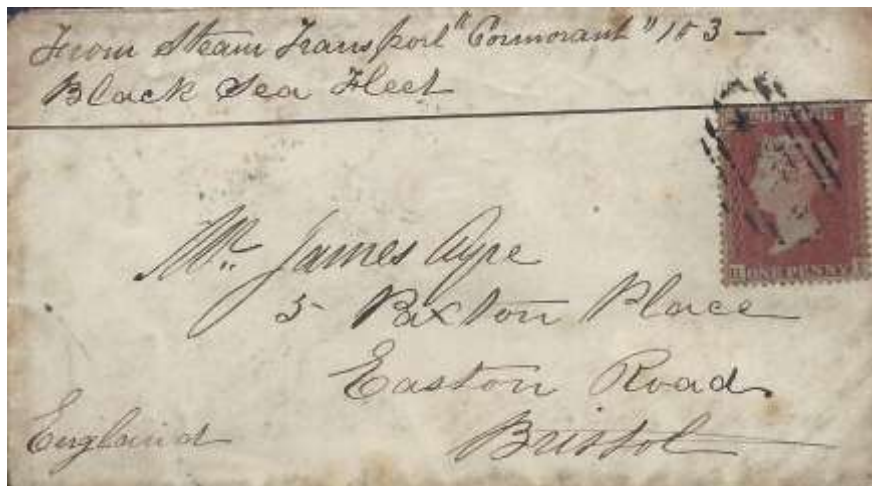 From Steam Transport "Cormorant" 183 —
Black Sea Fleet
POSTAGE
ONE PENNY
Mr. James Ayre
5 Paxton Place
Easton Road
Bristol
England